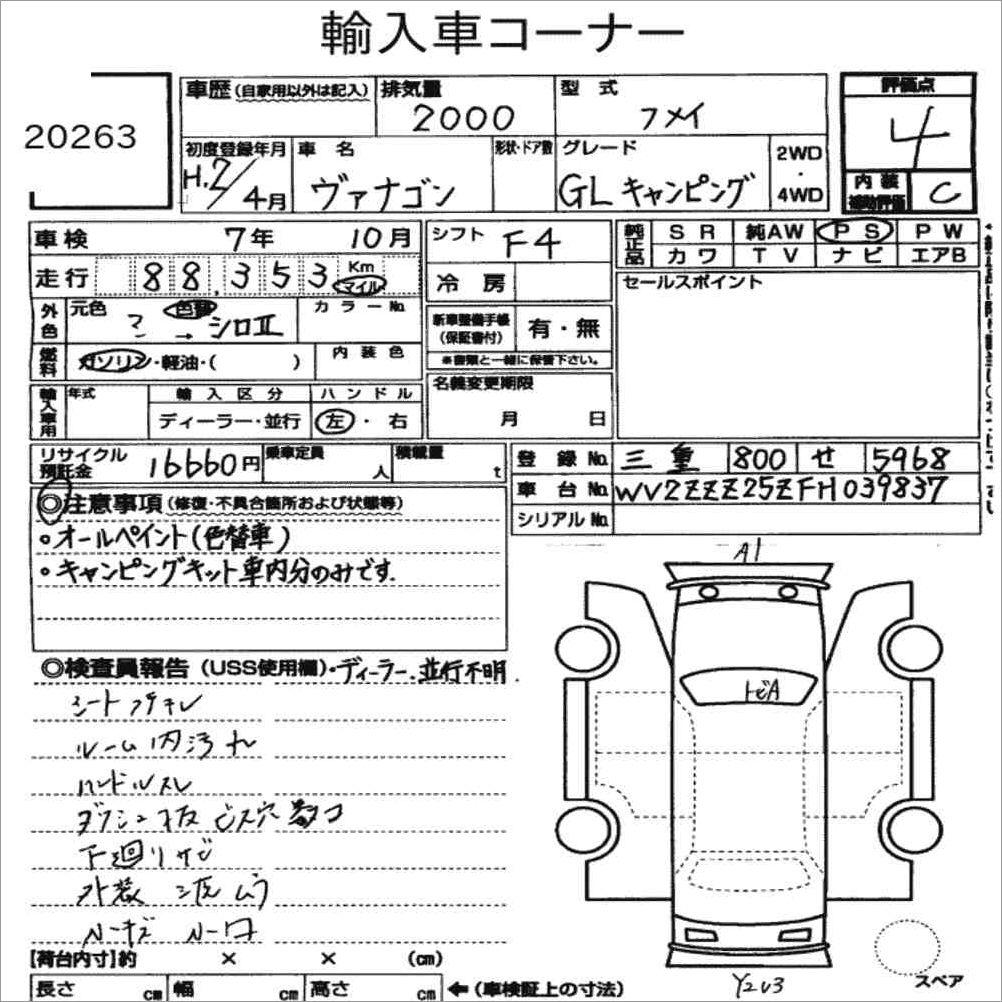 輸入車コーナー
20263
車歴(自家用以外は記入) 排気量 型式 評価点
2000 フメイ 4
初度登録年月 車名 形状・ドア数 グレード 2WD・4WD
H.2/4月 ヴァナゴン GL キャンピング
内装補助評価 C
車検 7年 10月 シフト F4
純正品 SR 純AW PS PW
カワ TV ナビ エアB
走行 88,353 Km マイル 冷房
セールスポイント
外色 元色 ? 色替 → シロⅡ カラーNo.
新車整備手帳(保証書付) 有・無
※書類と一緒に保管下さい。
燃料 ガソリン・軽油・( ) 内装色
名義変更期限 月 日
輸入車用 年式 輸入区分 ハンドル
ディーラー・並行 左・右
リサイクル預託金 16660円 乗車定員 人 積載量 t
登録No. 三重 800 せ 5968
車台No. WV2ZZZ25ZFH039837
シリアルNo.
◎注意事項(修復・不具合箇所および状態等)
・オールペイント(色替車)
・キャンピングキット車内分のみです.
A1
◎検査員報告(USS使用欄)・ディーラー.並行不明.
トビA
シートヘタレ
ルーム内汚れ
ハンドルスレ
ダッシュ板ビス穴数コ
下廻リサビ
外装 波ムラ
【荷台内寸】約 × × (cm)
スペア
長さ cm 幅 cm 高さ cm ←(車検証上の寸法)